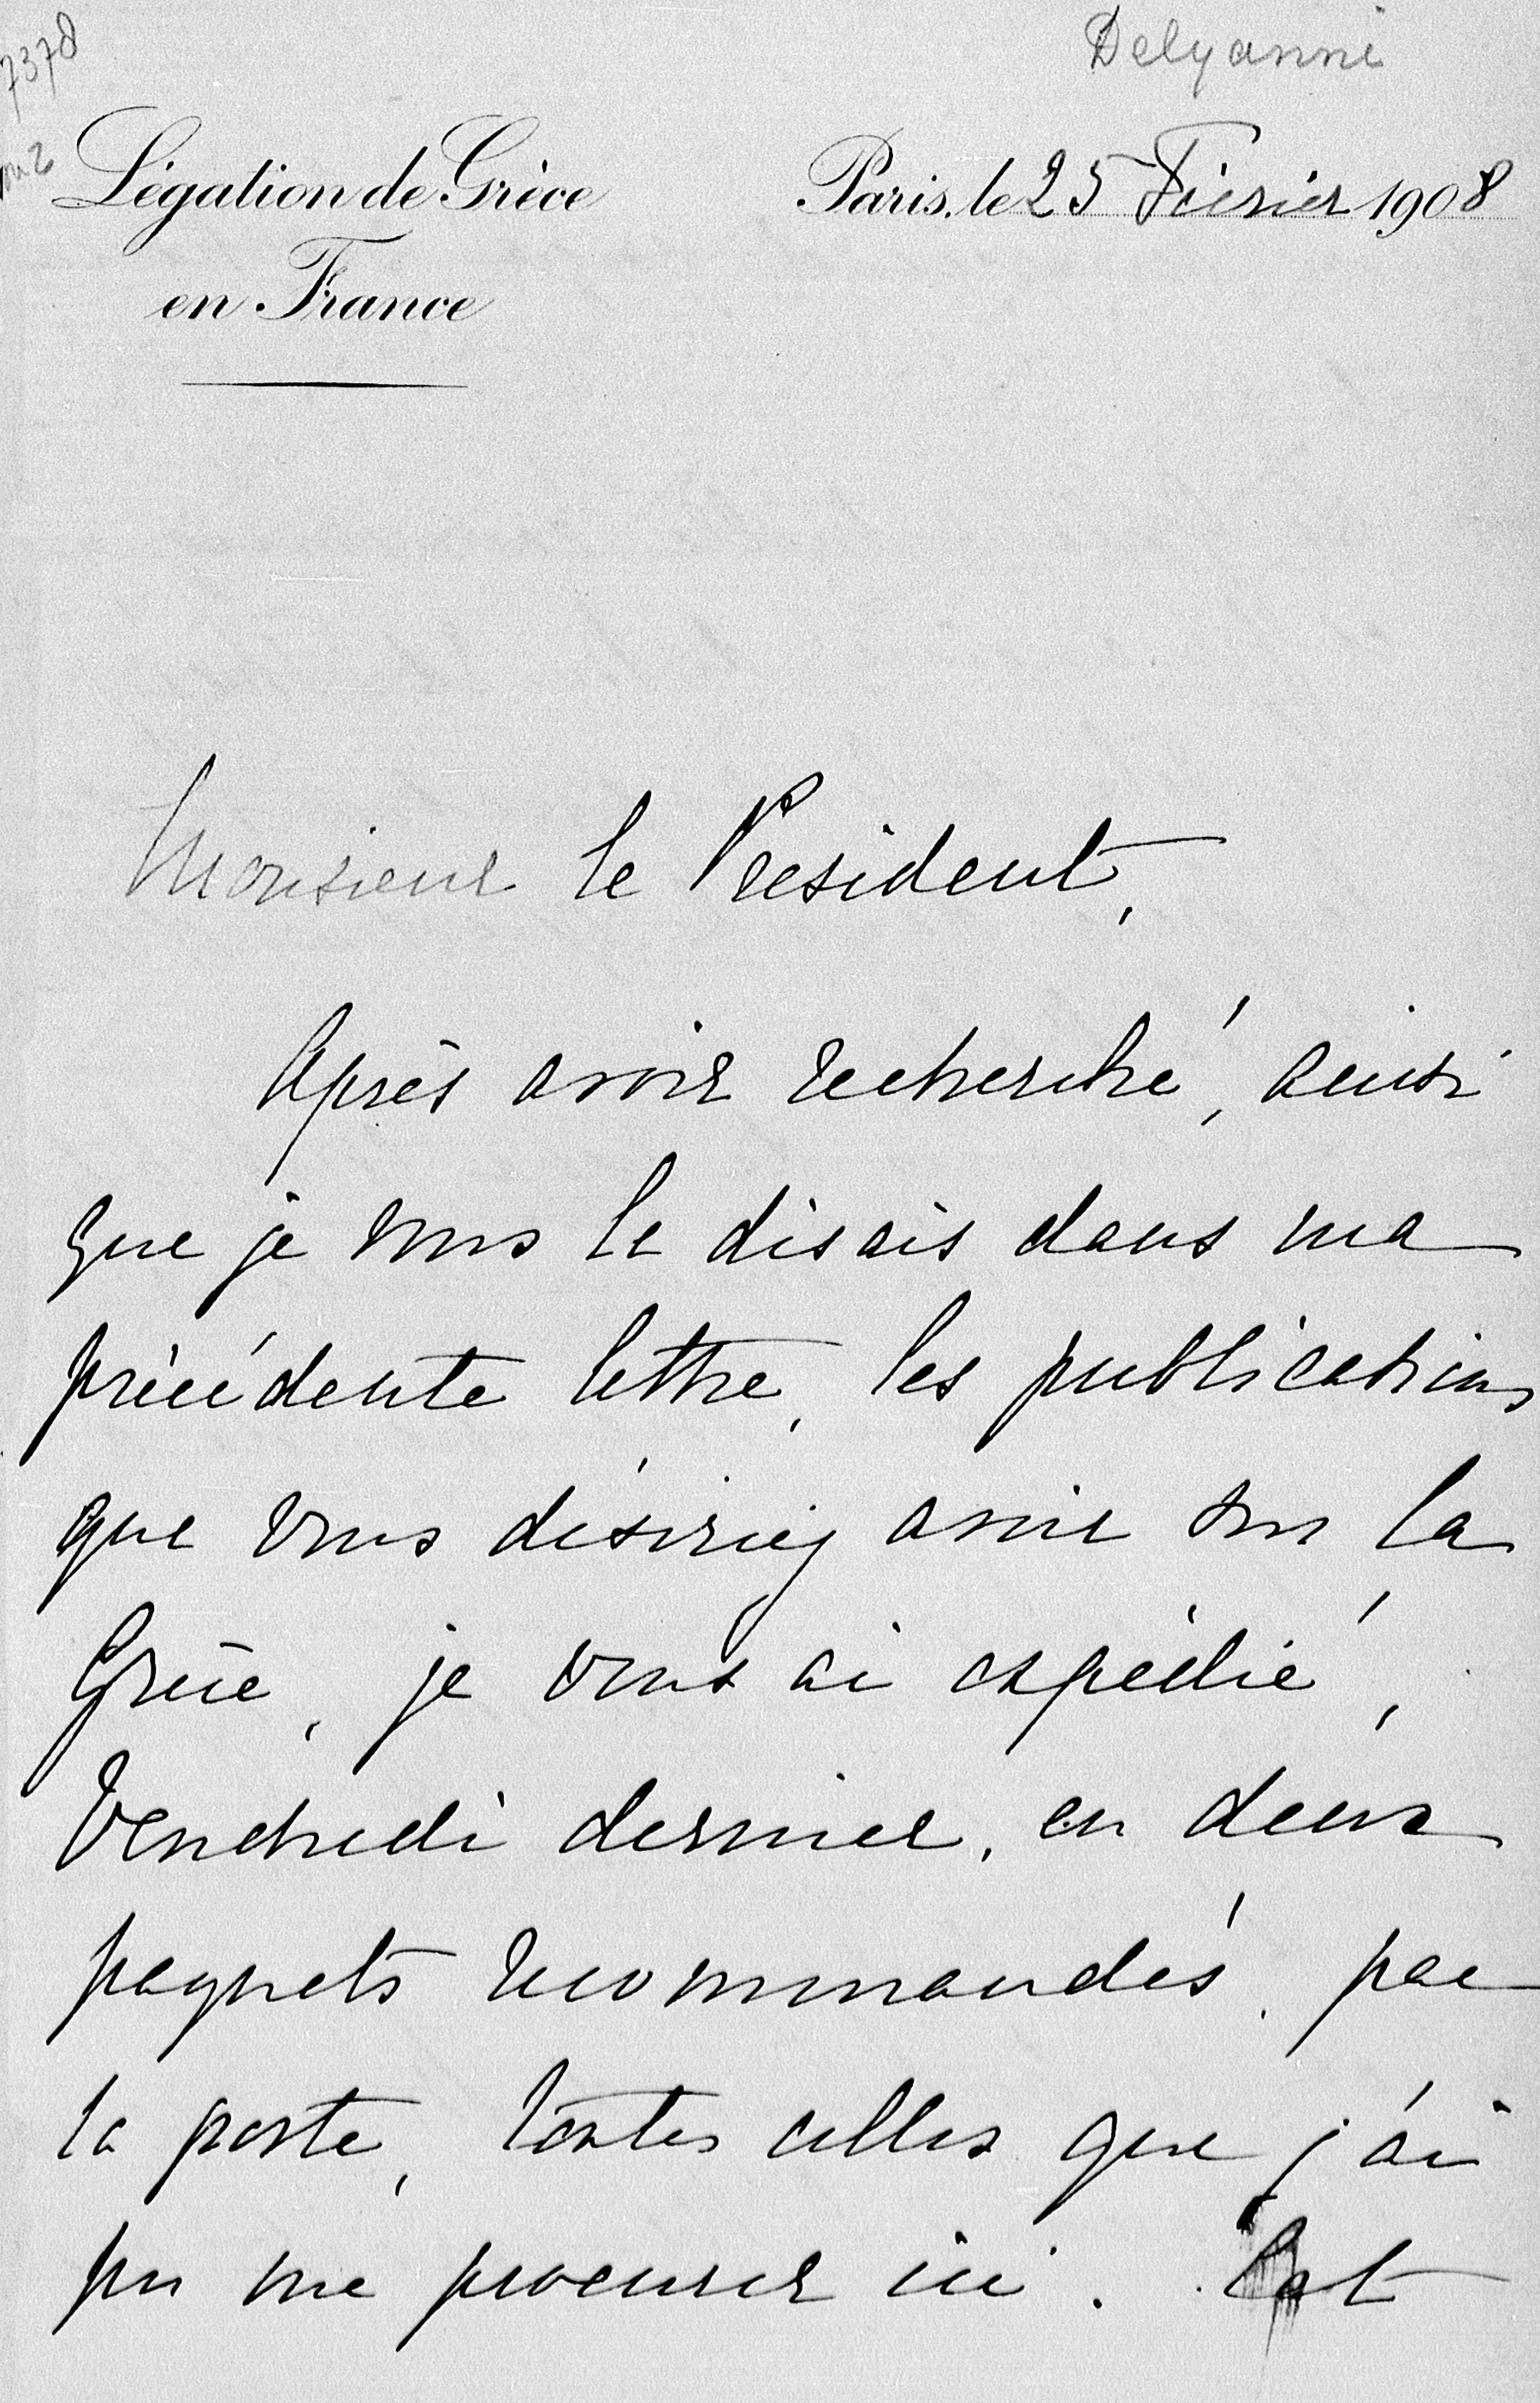 7378
Delyanni
Légation de Grèce
en France
Paris, le 25 Février 1908
Monsieur le President,
Après avoir recherché, ainsi
que je vous le disais dans ma
précédente lettre, les publications
que vous désiriez avoir sur la
Grèce, je vous ai expédié,
Vendredi dernier, en deux
paquets recommandés, par
la poste, toutes celles que j'ai
pu me procurer ici. C'est